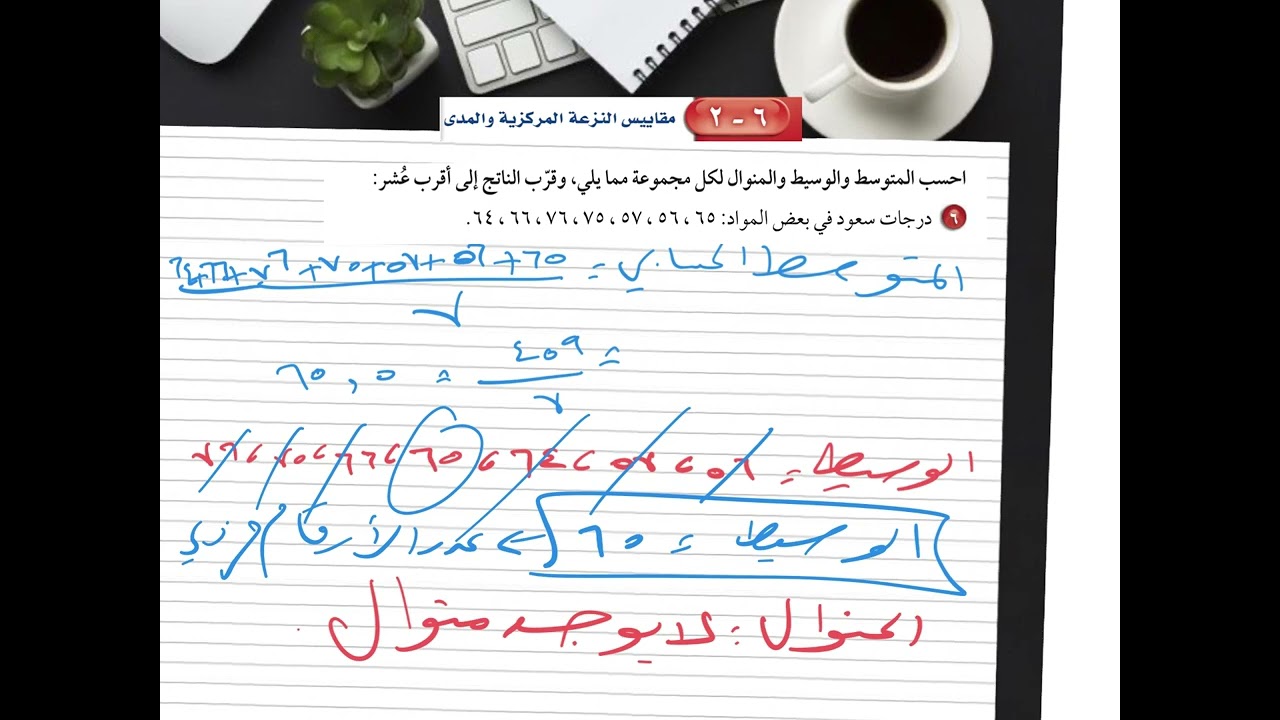 ٦ - ٢ مقاييس النزعة المركزية والمدى
احسب المتوسط والوسيط والمنوال لكل مجموعة مما يلي، وقرّب الناتج إلى أقرب عُشر:
٩ درجات سعود في بعض المواد: ٦٥، ٥٦، ٥٧، ٧٥، ٧٦، ٦٦، ٦٤.
المتوسط الحسابي = ٦٥+٥٦+٥٧+٧٥+٧٦+٦٦+٦٤
٧
= ٤٥٩
٧
= ٦٥,٥
الوسيط = ٥٦، ٥٧، ٦٤، ٦٥، ٦٦، ٧٥، ٧٦
الوسيط = ٦٥ ← عدد الأرقام فردي
المنوال: لا يوجد منوال